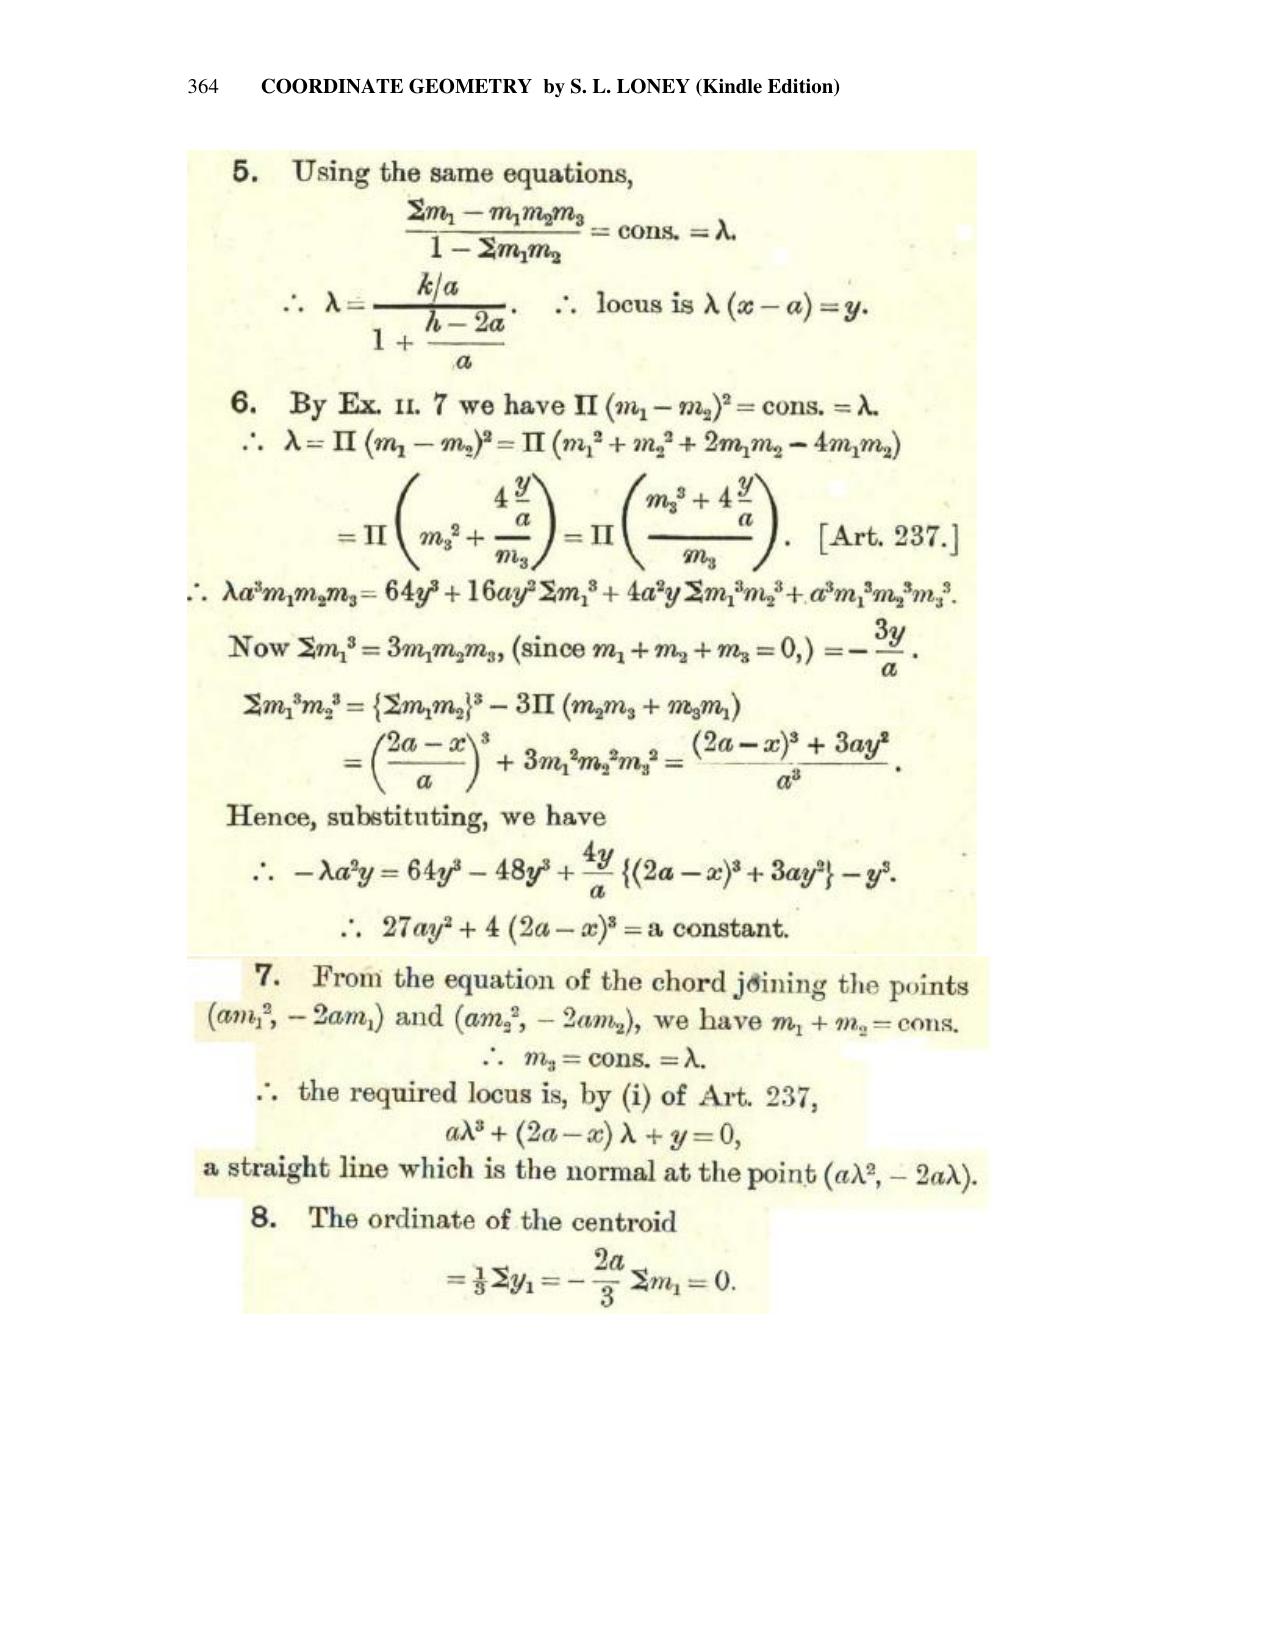 364 COORDINATE GEOMETRY by S. L. LONEY (Kindle Edition)
5. Using the same equations,
(Σm₁ − m₁m₂m₃)/(1 − Σm₁m₂) = cons. = λ.
∴ λ = (k/a)/(1 + (h − 2a)/a). ∴ locus is λ (x − a) = y.
6. By Ex. II. 7 we have Π (m₁ − m₂)² = cons. = λ.
∴ λ = Π (m₁ − m₂)² = Π (m₁² + m₂² + 2m₁m₂ − 4m₁m₂)
= Π (m₃² + (4 y/a)/m₃) = Π ((m₃³ + 4 y/a)/m₃). [Art. 237.]
∴ λa³m₁m₂m₃ = 64y³ + 16ay² Σm₁³ + 4a²y Σm₁³m₂³ + a³m₁³m₂³m₃³.
Now Σm₁³ = 3m₁m₂m₃, (since m₁ + m₂ + m₃ = 0,) = − 3y/a.
Σm₁³m₂³ = {Σm₁m₂}³ − 3Π (m₂m₃ + m₃m₁)
= ((2a − x)/a)³ + 3m₁²m₂²m₃² = ((2a − x)³ + 3ay²)/a³.
Hence, substituting, we have
∴ − λa²y = 64y³ − 48y³ + 4y/a {(2a − x)³ + 3ay²} − y³.
∴ 27ay² + 4 (2a − x)³ = a constant.
7. From the equation of the chord joining the points
(am₁², − 2am₁) and (am₂², − 2am₂), we have m₁ + m₂ = cons.
∴ m₃ = cons. = λ.
∴ the required locus is, by (i) of Art. 237,
aλ³ + (2a − x) λ + y = 0,
a straight line which is the normal at the point (aλ², − 2aλ).
8. The ordinate of the centroid
= ⅓ Σy₁ = − 2a/3 Σm₁ = 0.